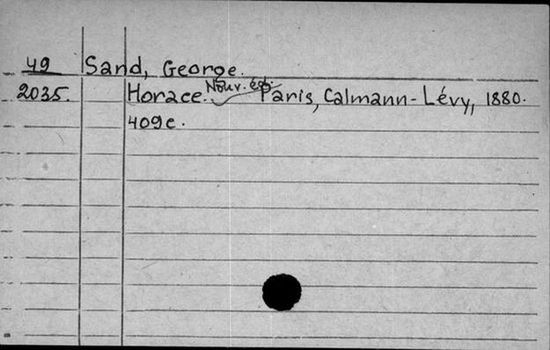 49 Sand, George.
2035. Horace. Nouv. éd. Paris, Calmann-Lévy, 1880.
409c.